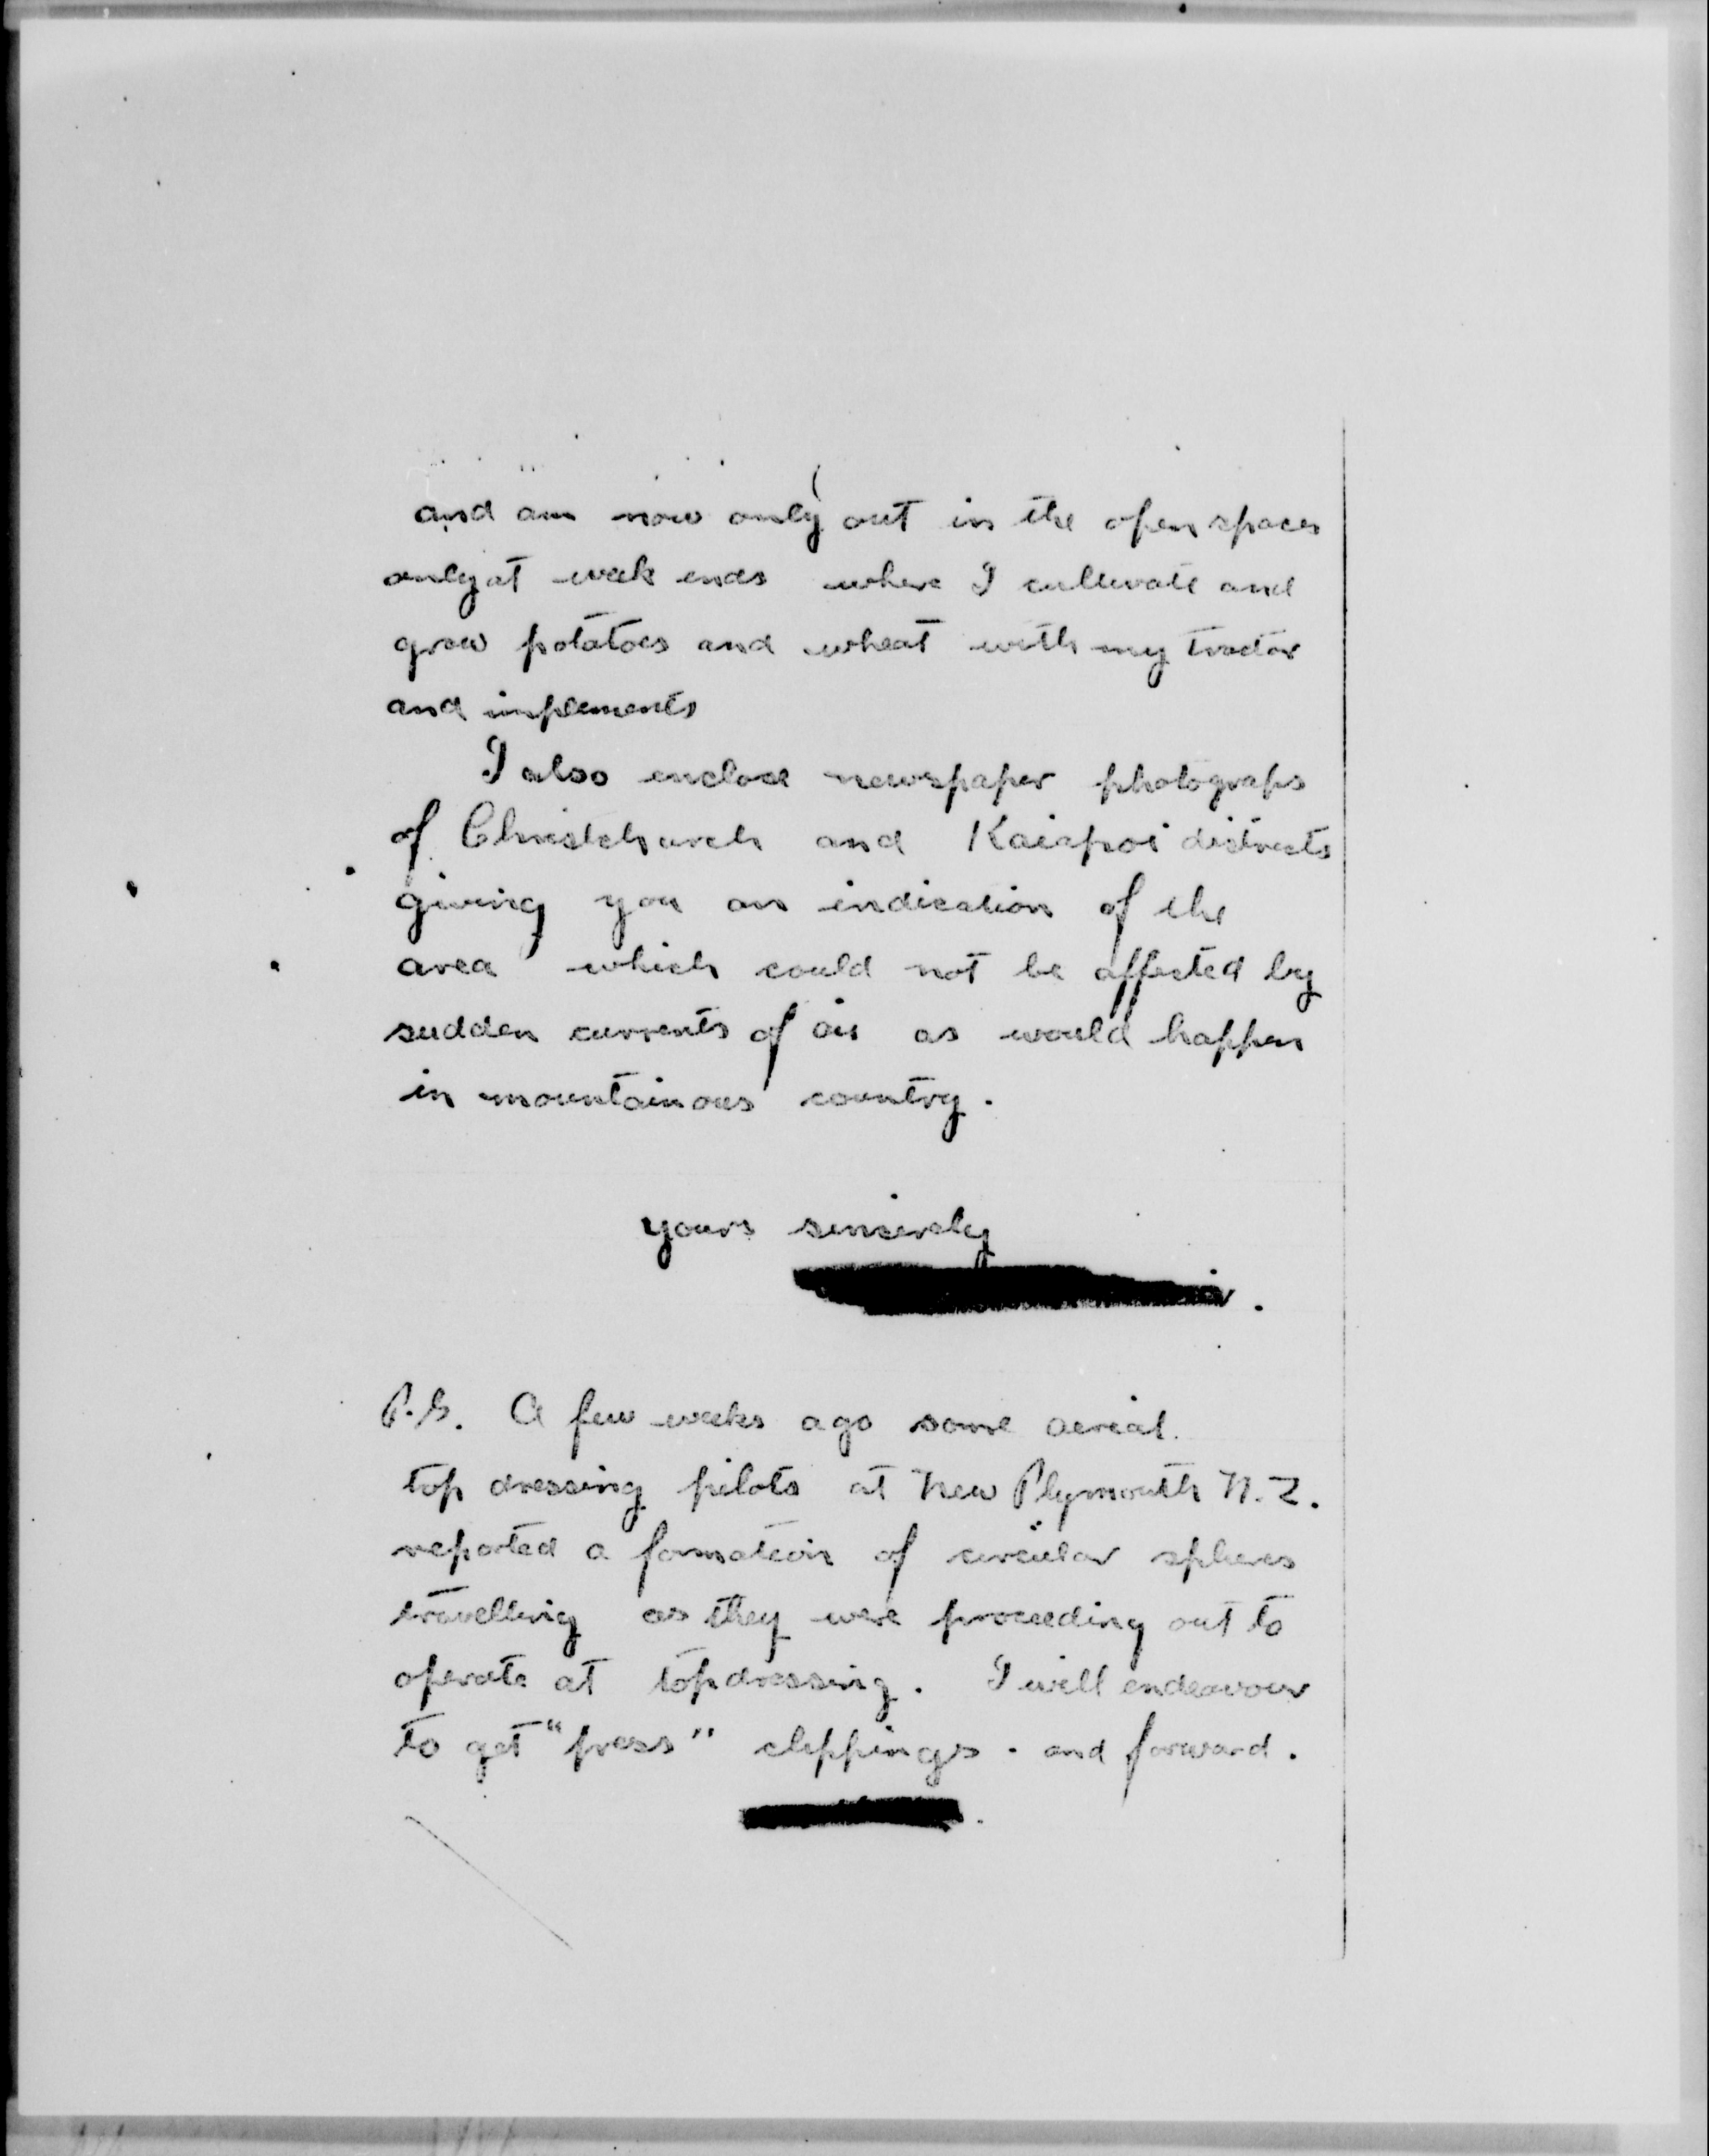 and am now only out in the open spaces
only at week ends where I cultivate and
grow potatoes and wheat with my tractor
and implements
I also enclose newspaper photograps
of Christchurch and Kaiapoi districts
giving you an indication of the
area which could not be affected by
sudden currents of air as would happen
in mountainous country.
yours sincerely
P.S. A few weeks ago some aerial
top dressing pilots at New Plymouth N.Z.
reported a formation of circular spheres
travelling as they were proceeding out to
operate at topdressing. I will endeavour
to get "press" clippings. and forward.